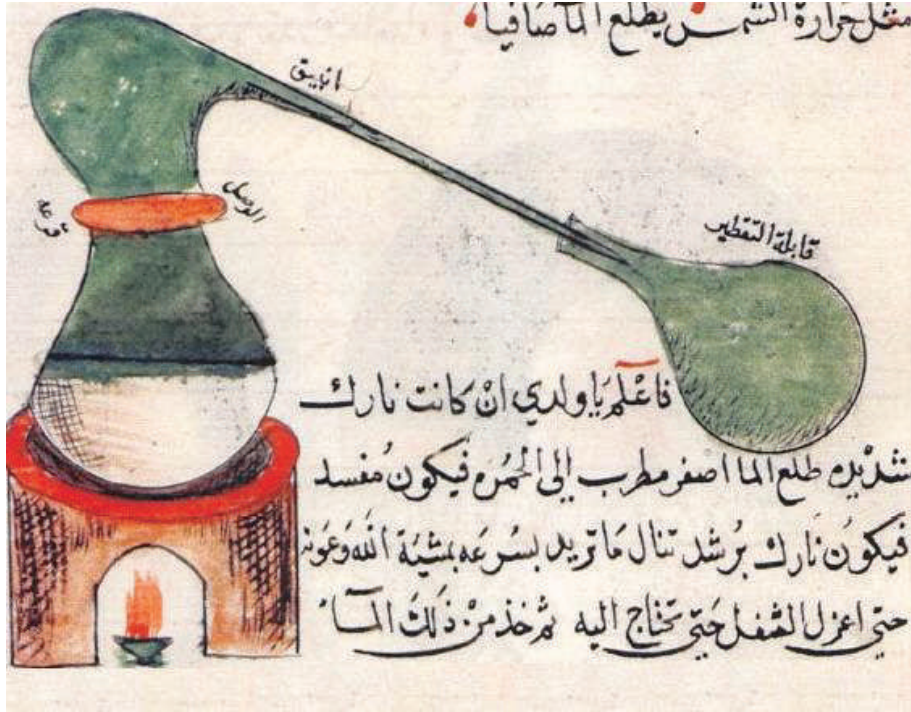 مثل حرارة الشمس يطلع الما صافيا
انبيق
الوصل
قرعه
قابلة التقطير
فاعْلم يَا ولدي انْ كانت نارك
شديده طلع الما اصفر مطرب إلى الحمره فيكون مُفسد
فيكون نارك برُشد تنال مَا تريد بسُرعَه بمشيَة الله وَعَونه
حتى اعزل الثفل حَتى تحتاج اليه ثم خذ منْ ذلكَ المآء